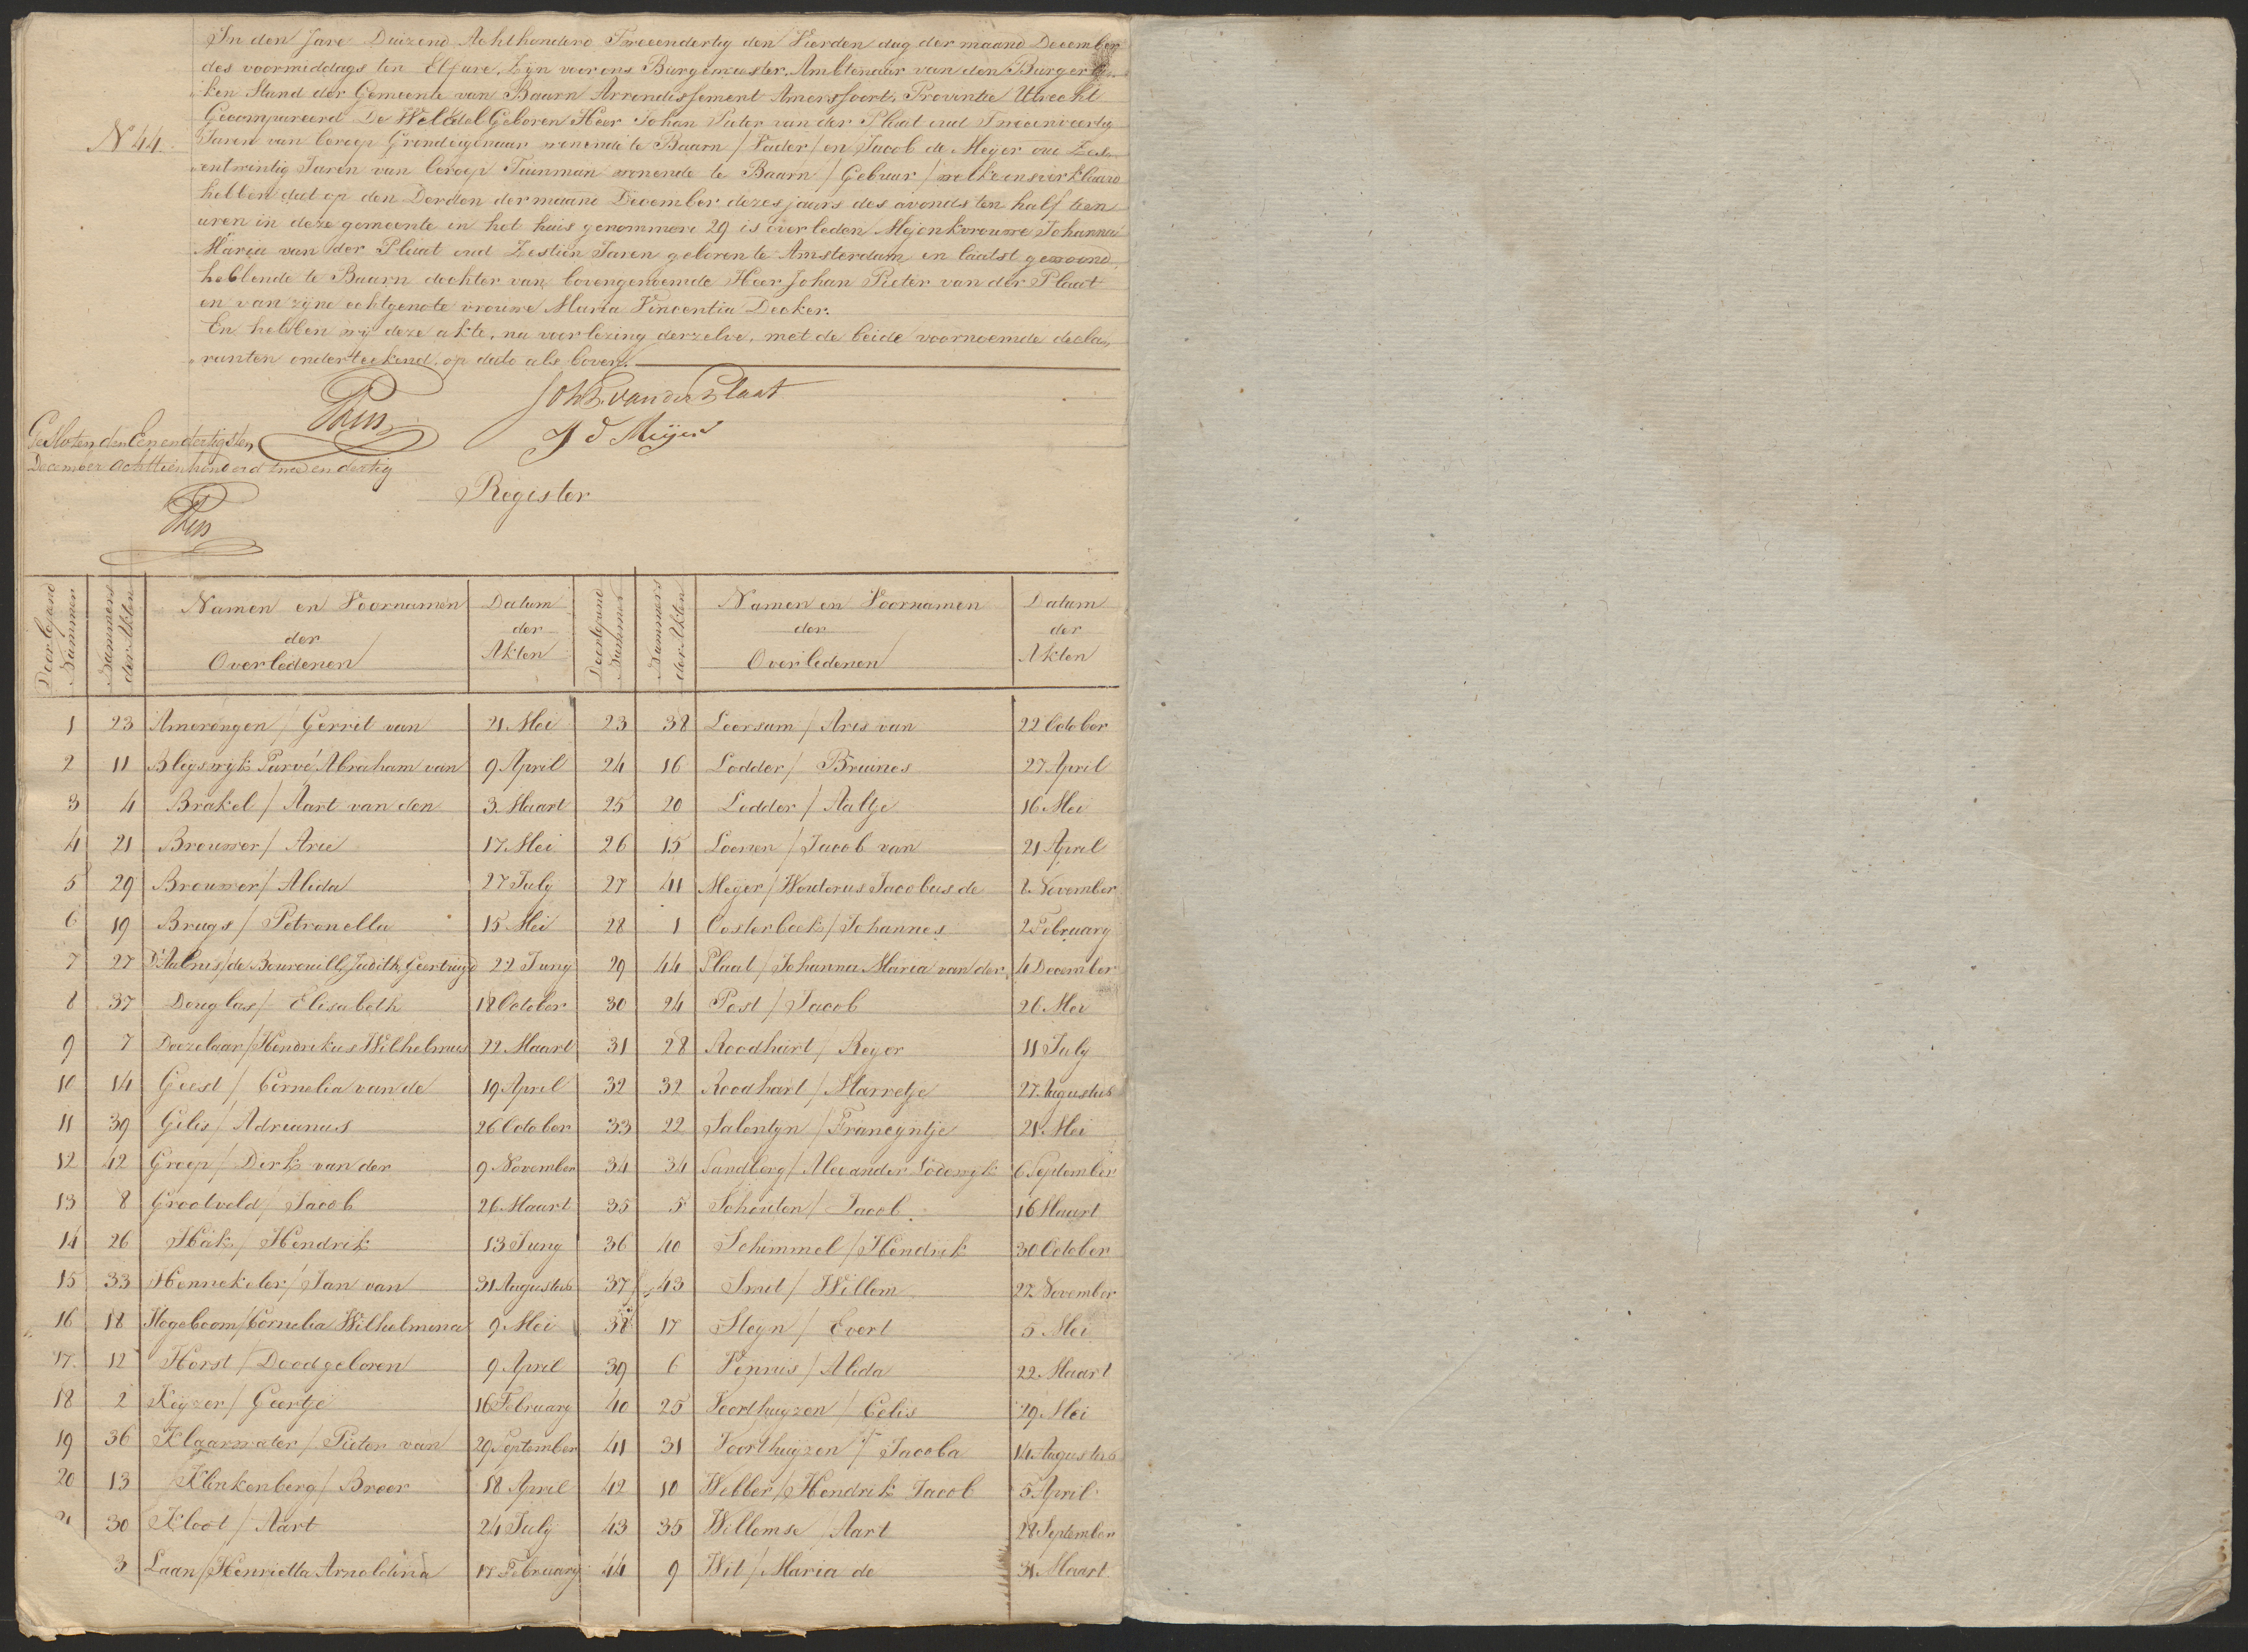 In den Jare Duizend Achthonderd Tweeendertig den Vierden dag der maand December
des voormiddags ten Elf ure, Zijn voor ons Burgemeester, Ambtenaar van den Burgerly-
ken Stand der Gemeente van Baarn Arrondissement Amersfoort, Provintie Utrecht
Gecompareerd De WelEdelGeboren Heer Johan Pieter van der Plaat oud Tweeenveertig
N 44.
Jaren van beroep Grondeigenaar wonende te Baarn / Vader / en Jacob de Meyer oud Zes-
entwintig Jaren van beroep Tuinman wonende te Baarn / Gebuur / welke ons verklaard
hebben dat op den Derden der maand December dezes jaars des avonds ten half tien
uren in deze gemeente in het huis genommerd 29 is overleden Mejonkvrouwe Johanna
Maria van der Plaat oud Zestien Jaren geboren te Amsterdam en laatst gewoond
hebbende te Baarn dochter van bovengenoemde Heer Johan Pieter van der Plaat
en van zijne echtgenote vrouwe Maria Vincentia Decker.
En hebben wij deze akte, na voorlezing derzelve, met de beide voornoemde decla-
ranten onderteekend, op dato als boven.
Joh P. van der Plaat
J d Meijer
Gesloten den Eenendertigsten
December achttienhonderd twee en dertig
Register
Doorlopend Nummer | Nummers der Akten | Namen en Voornamen der Overledenen | Datum der Akten | Doorlopend Nummer | Nummers der Akten | Namen en Voornamen der Overledenen | Datum der Akten
1 23 Amerongen / Gerrit van 21 Mei 23 38 Leersum / Aris van 22 October
2 11 Bleyswijk Parvé / Abraham van 9 April 24 16 Lodder / Bruines 27 April
3 4 Brakel / Aart van den 3 Maart 25 20 Lodder / Aaltje 16 Mei
4 21 Brouwer / Arie 17 Mei 26 15 Loenen / Jacob van 21 April
5 29 Brouwer / Alida 27 July 27 41 Meyer / Wouterus Jacobus de 8 November
6 19 Brugs / Petronella 15 Mei 28 1 Oosterbeek / Johannes 2 February
7 27 D'Aulnis / de Bourouill, Judith Geertruyd 22 Juny 29 44 Plaat / Johanna Maria van der 4 December
8 37 Douglas / Elisabeth 18 October 30 24 Post / Jacob 26 Mei
9 7 Doezelaar / Hendrikus Wilhelmus 22 Maart 31 28 Roodhart / Reyer 11 July
10 14 Geest / Cornelia van de 19 April 32 32 Roodhart / Marretje 27 Augustus
11 39 Gilis / Adrianus 26 October 33 22 Salentyn / Francyntje 21 Mei
12 42 Groep / Dirk van der 9 November 34 34 Sandberg / Alexander Lodewyk 6 September
13 8 Grootveld / Jacob 26 Maart 35 5 Schouten / Jacob 16 Maart
14 26 Hak / Hendrik 13 Juny 36 40 Schimmel / Hendrik 30 October
15 33 Hennekeler / Jan van 31 Augustus 37 43 Smit / Willem 27 November
16 18 Hogeboom / Cornelia Wilhelmina 9 Mei 38 17 Steyn / Evert 5 Mei
17 12 Horst / Doodgeboren 9 April 39 6 Vennis / Alida 22 Maart
18 2 Keyzer / Geertje 16 February 40 25 Voorthuyzen / Celis 29 Mei
19 36 Klaarwater / Pieter van 29 September 41 31 Voorthuijzen / Jacoba 14 Augustus
20 13 Klinkenberg / Broer 18 April 42 10 Webber / Hendrik Jacob 5 April
21 30 Kloot / Aart 24 July 43 35 Willemse / Aart 28 September
3 Laan / Henrietta Arnoldina 17 February 44 9 Wit / Maria de 31 Maart